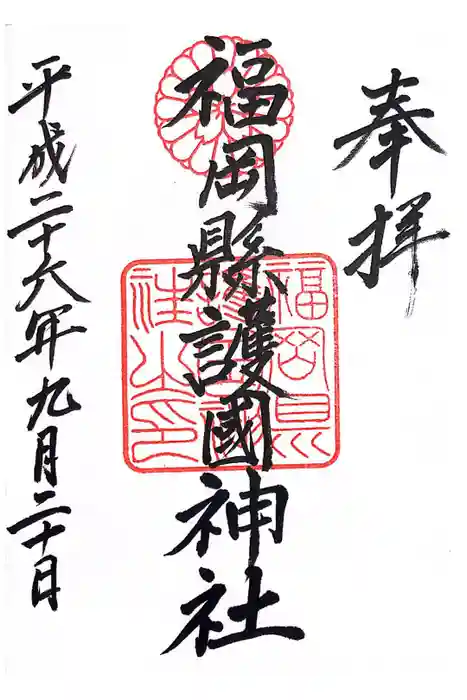 奉拝
福岡縣護國神社
福岡県
護国神
社之印
平成二十六年九月二十日